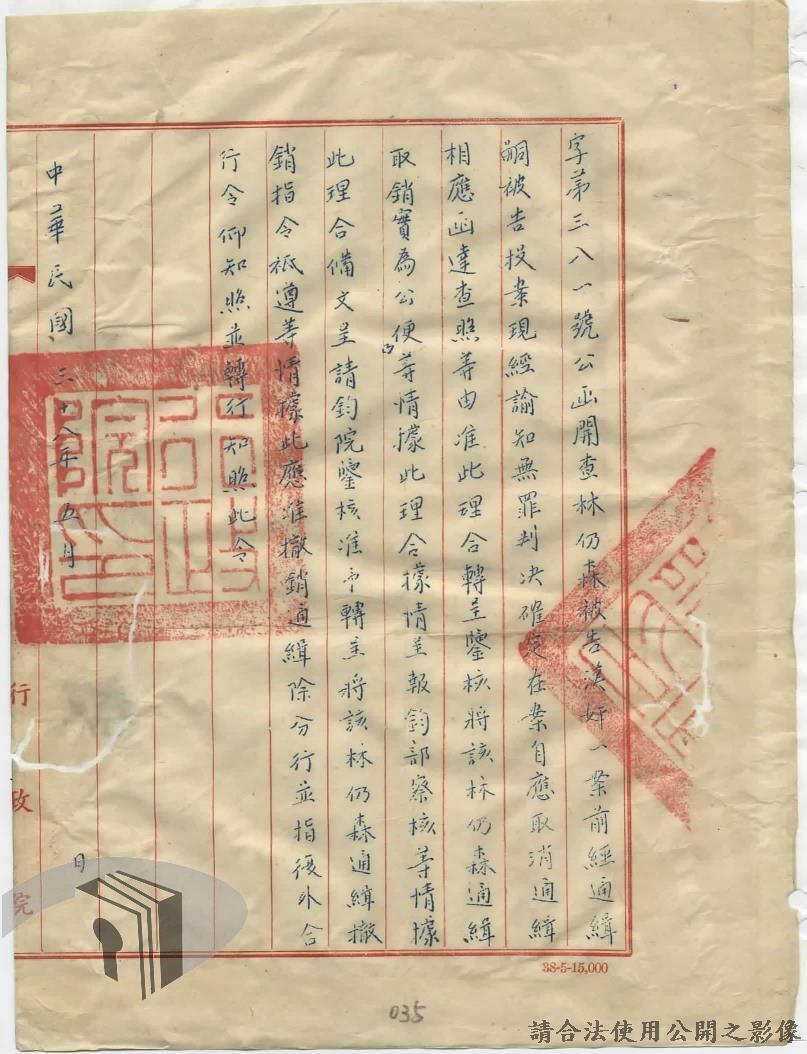 字第三八一號公函開查林仍森被告漢奸一案前經通緝
嗣被告投案現經諭知無罪判决確定在案自應取消通緝
相應函達查照等由准此理合轉呈鑒核將該林仍森通緝
取銷實為公便等情據此理合據情呈報鈞部察核等情據
此理合備文呈請鈞院鑒核准予轉呈將該林仍森通緝撤
銷指令祇遵等情據此應准撤銷通緝除分行並指復外合
行令仰知照並轉行知照此令
中華民國三十八年五月 日
行政院
行政院印
38-5-15,000
035
請合法使用公開之影像